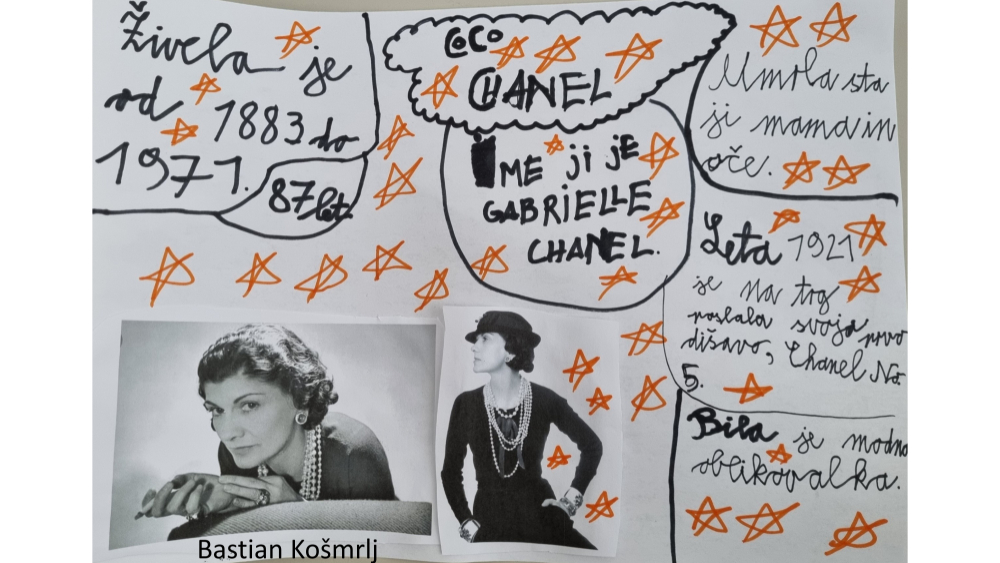 Živela je
od 1883 do
1971.
87 let.
COCO
CHANEL
IME ji jE
GABRiELLE
CHANEL.
Umrla sta
ji mama in
oče.
Leta 1921
je na trg
poslala svojo prvo
dišavo, Chanel No.
5.
Bila je modna
oblikovalka.
Bastian Košmrlj